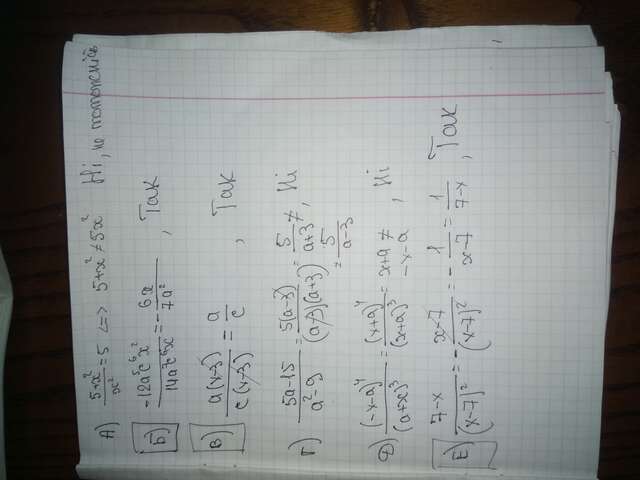 А) (5+x²)/x² = 5 <=> 5+x² ≠ 5x² Ні, не тотожність
Б) (-12a⁵c⁶x²)/(14a⁷c⁶x) = -6x/7a², Так
В) a(x-3)/c(x-3) = a/c, Так
Г) (5a-15)/(a²-9) = 5(a-3)/(a-3)(a+3) = 5/(a+3) ≠, Ні
= 5/(a-3)
Д) (-x-a)⁴/(a+x)³ = (x+a)⁴/(x+a)³ = x+a ≠, Ні
-x-a
Е) (7-x)/(x-7)² = -(x-7)/(x-7)² = -1/(x-7) = 1/(7-x), Так